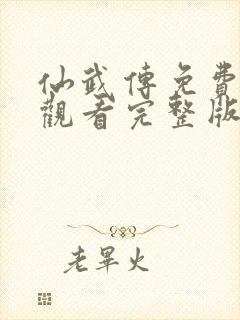 仙武傳免費
觀看完整版
老畢火